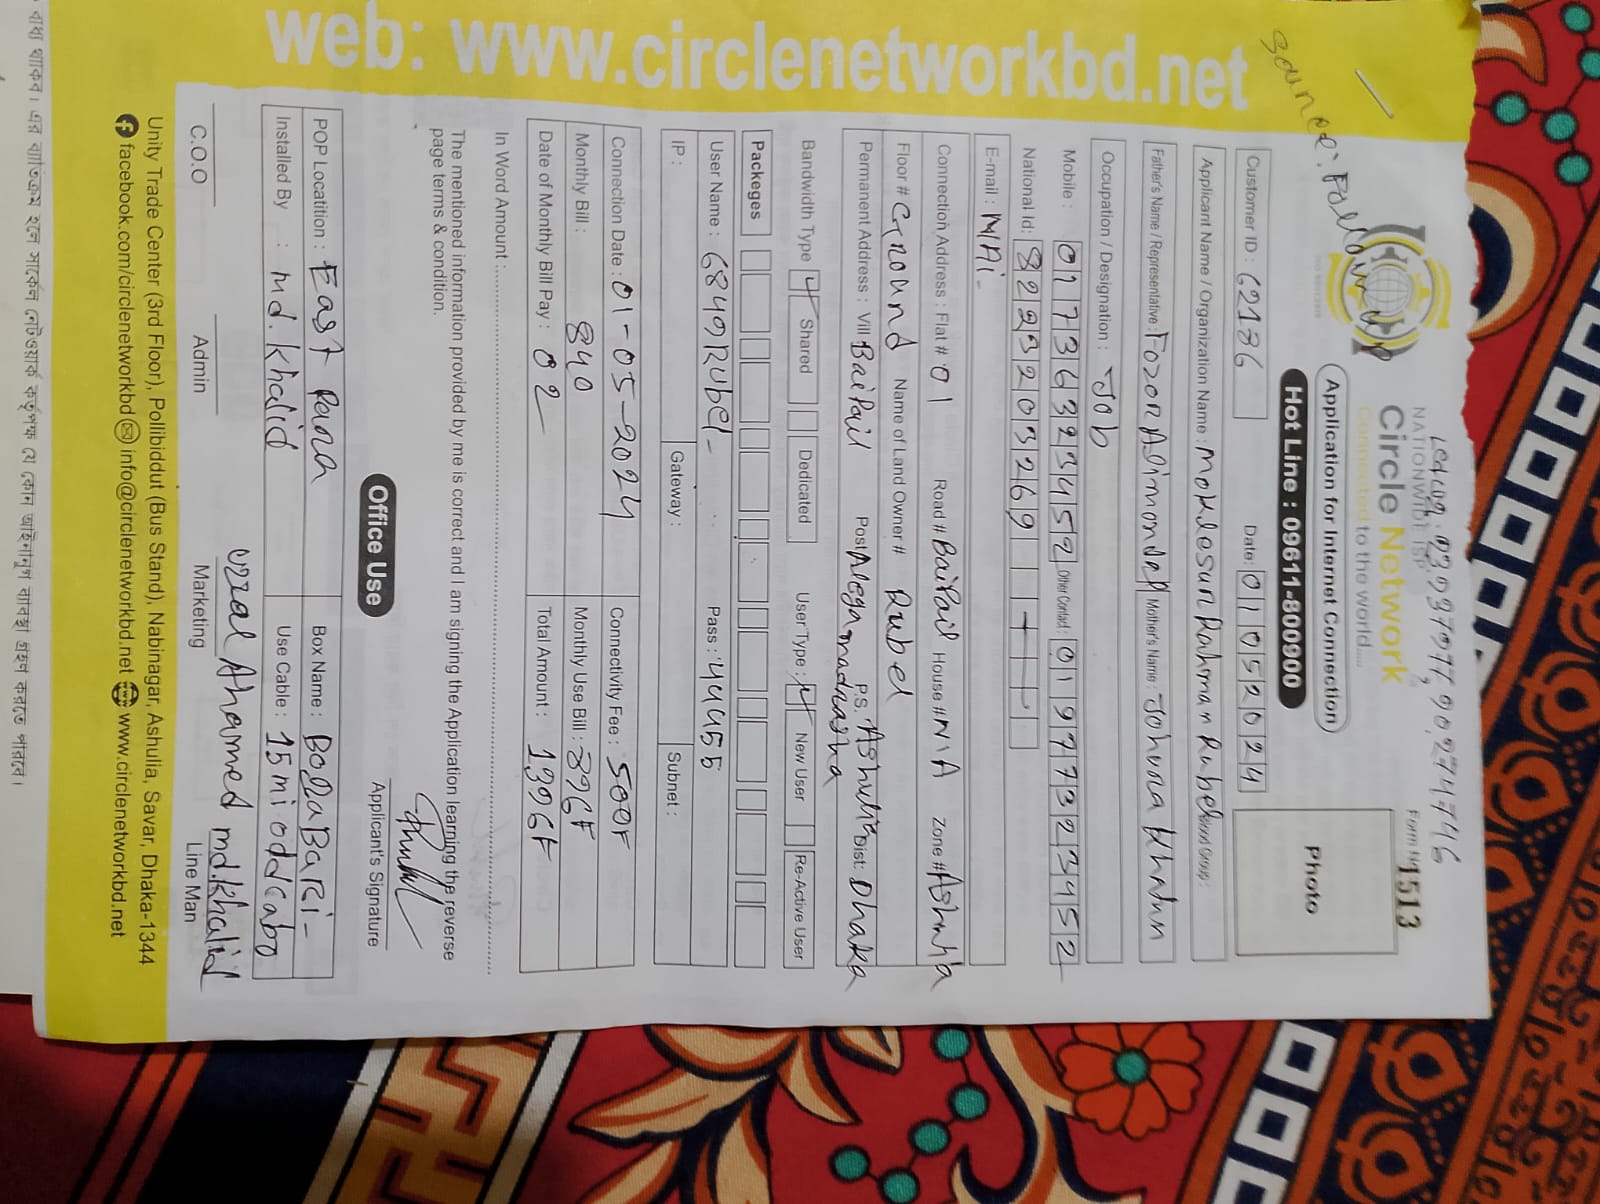 web: www.circlenetworkbd.net
NATIONWIDE ISP
Circle Network
Connected to the world.....
Form №1513
Application for Internet Connection
Hot Line : 09611-800900
Photo
Customer ID : 62186
Date: 01052024
Applicant Name / Organization Name : Mokhlesur Rahman Rubel
Father's Name / Representative : Fozor Ali mondal Mother's Name : Johura Khatun
Occupation / Designation : Job
Mobile : 01736323452 Other Contact : 01977323452
National Id: 8223203269
E-mail : MAi-
Connection Address : Flat # 01 Road # Baipail House # N/A Zone #
Floor # Ground Name of Land Owner # Rubel
Permanent Address : Vill Baipail Post P.S. Ashulia Dist: Dhaka
madrasha
Bandwidth Type Shared Dedicated User Type : New User Re-Active User
Packeges
User Name : 6849Rubel- Pass : 44455
IP : Gateway : Subnet :
Connection Date : 01-05-2024 Connectivity Fee : 500F
Monthly Bill : 840 Monthly Use Bill : 896F
Date of Monthly Bill Pay : 02 Total Amount : 1396F
In Word Amount :
The mentioned information provided by me is correct and I am signing the Application learning the reverse
page terms & condition.
Applicant's Signature
Office Use
POP Locatition : East Para Box Name : BollaBaRi-
Installed By : md. khalid Use Cable : 15mi odd cabo
Ahamed md.khalid
C.O.O Admin Marketing Line Man
Unity Trade Center (3rd Floor), Pollibiddut (Bus Stand), Nabinagar, Ashulia, Savar, Dhaka-1344
facebook.com/circlenetworkbd info@circlenetworkbd.net www.circlenetworkbd.net
বাধ্য থাকিব। এর ব্যতিক্রম হলে সার্কেল নেটওয়ার্ক কর্তৃপক্ষ যে কোন আইনানুগ ব্যবস্থা গ্রহণ করতে পারবে।